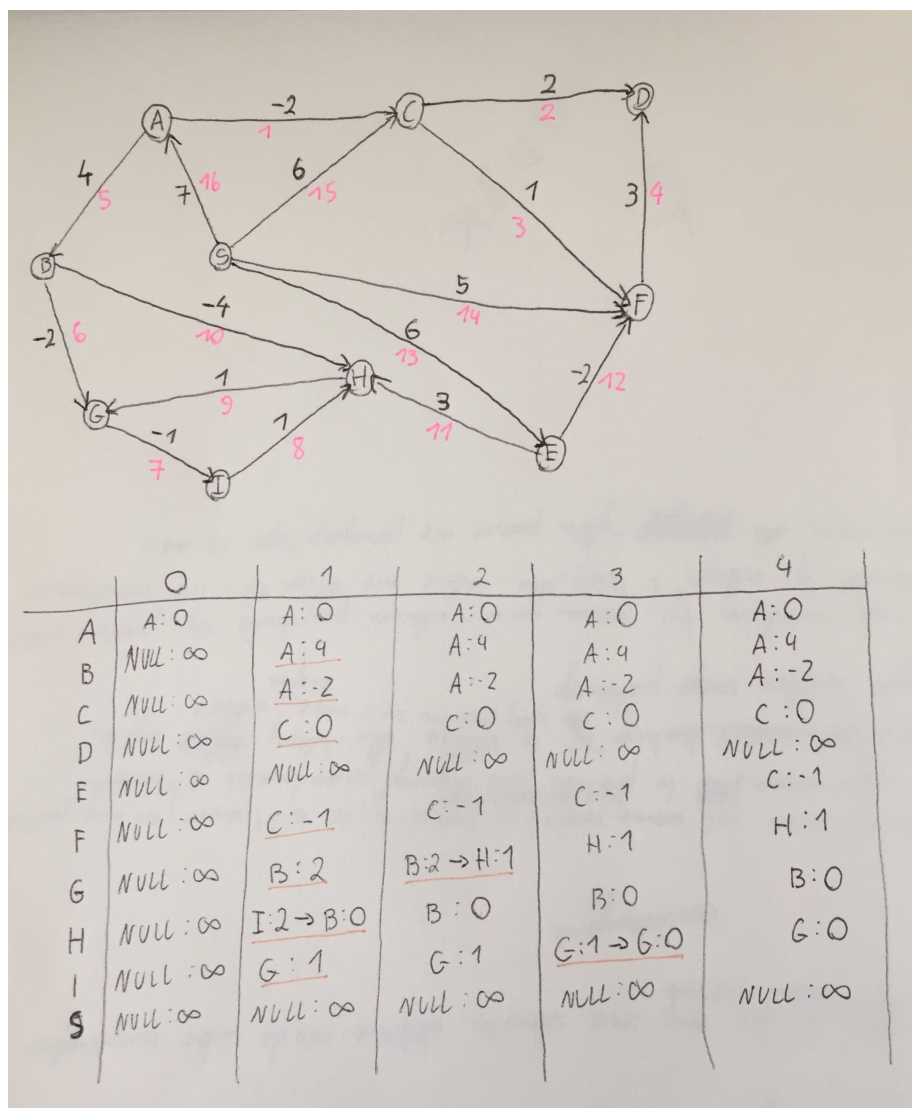 A
-2
1
C
2
2
D
4
5
7
16
6
15
1
3
3
4
B
S
-4
10
5
14
F
-2
6
6
13
H
1
9
-2
12
3
11
G
-1
7
1
8
E
I
0 1 2 3 4
A A:0 A:0 A:0 A:0 A:0
B NULL:∞ A:4 A:4 A:4 A:4
C NULL:∞ A:-2 A:-2 A:-2 A:-2
D NULL:∞ C:0 C:0 C:0 C:0
E NULL:∞ NULL:∞ NULL:∞ NULL:∞ NULL:∞
F NULL:∞ C:-1 C:-1 C:-1 C:-1
G NULL:∞ B:2 B:2→H:1 H:1 H:1
H NULL:∞ I:2→B:0 B:0 B:0 B:0
I NULL:∞ G:1 G:1 G:1→G:0 G:0
S NULL:∞ NULL:∞ NULL:∞ NULL:∞ NULL:∞